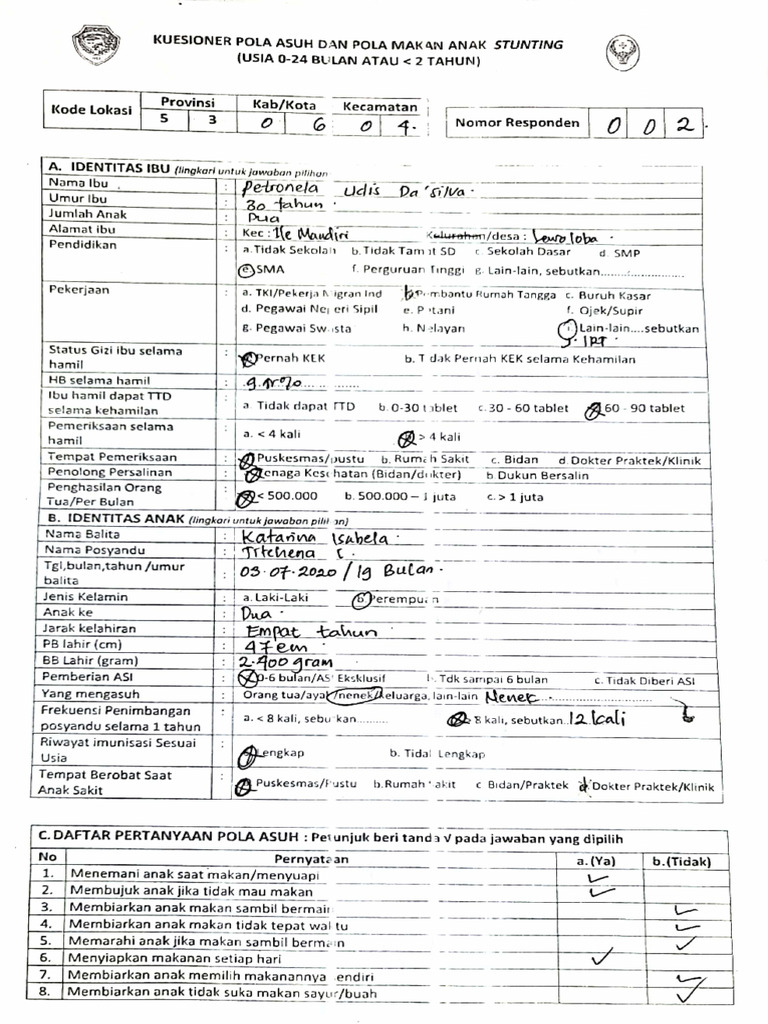 KUESIONER POLA ASUH DAN POLA MAKAN ANAK STUNTING
(USIA 0-24 BULAN ATAU < 2 TAHUN)
Kode Lokasi Provinsi Kab/Kota Kecamatan
5 3 0 6 0 4.
Nomor Responden 0 0 2.
A. IDENTITAS IBU (lingkari untuk jawaban pilihan
Nama Ibu : Petronela Udis Da'silva.
Umur Ibu : 30 tahun.
Jumlah Anak : Dua
Alamat ibu : Kec : Ile Mandiri Kelurahan/desa : Lewoloba.
Pendidikan : a. Tidak Sekolah b. Tidak Tamat SD c. Sekolah Dasar d. SMP
e. SMA f. Perguruan Tinggi g. Lain-lain, sebutkan...............
Pekerjaan : a. TKI/Pekerja Migran Ind b. Pembantu Rumah Tangga c. Buruh Kasar
d. Pegawai Negeri Sipil e. Petani f. Ojek/Supir
g. Pegawai Swasta h. Nelayan i. Lain-lain....sebutkan
IRT
Status Gizi ibu selama hamil : a. Pernah KEK b. Tidak Pernah KEK selama Kehamilan
HB selama hamil :
Ibu hamil dapat TTD selama kehamilan : a. Tidak dapat TTD b. 0-30 tablet c. 30 - 60 tablet d. 60 - 90 tablet
Pemeriksaan selama hamil : a. < 4 kali b. > 4 kali
Tempat Pemeriksaan : a. Puskesmas/pustu b. Rumah Sakit c. Bidan d. Dokter Praktek/Klinik
Penolong Persalinan : a. Tenaga Kesehatan (Bidan/dokter) b. Dukun Bersalin
Penghasilan Orang Tua/Per Bulan : a. < 500.000 b. 500.000 – 1 juta c. > 1 juta
B. IDENTITAS ANAK (lingkari untuk jawaban pilihan)
Nama Balita : Katarina Isabela.
Nama Posyandu : Titehena I.
Tgl,bulan,tahun /umur balita : 03.07.2020 / 19 Bulan.
Jenis Kelamin : a. Laki-Laki b. Perempuan
Anak ke : Dua.
Jarak kelahiran : Empat tahun
PB lahir (cm) : 47 cm
BB Lahir (gram) : 2.400 gram
Pemberian ASI : a. 0-6 bulan/ASI Eksklusif b. Tdk sampai 6 bulan c. Tidak Diberi ASI
Yang mengasuh : Orang tua/ayah/nenek/keluarga, lain-lain Nenek
Frekuensi Penimbangan posyandu selama 1 tahun : a. < 8 kali, sebutkan......... b. 8 kali, sebutkan..12 kali
Riwayat imunisasi Sesuai Usia : a. Lengkap b. Tidak Lengkap
Tempat Berobat Saat Anak Sakit : a. Puskesmas/Pustu b. Rumah Sakit c Bidan/Praktek d Dokter Praktek/Klinik
C. DAFTAR PERTANYAAN POLA ASUH : Petunjuk beri tanda √ pada jawaban yang dipilih
No Pernyataan a. (Ya) b. (Tidak)
1. Menemani anak saat makan/menyuapi ✓
2. Membujuk anak jika tidak mau makan ✓
3. Membiarkan anak makan sambil bermain ✓
4. Membiarkan anak makan tidak tepat waktu ✓
5. Memarahi anak jika makan sambil bermain ✓
6. Menyiapkan makanan setiap hari ✓
7. Membiarkan anak memilih makanannya sendiri ✓
8. Membiarkan anak tidak suka makan sayur/buah ✓